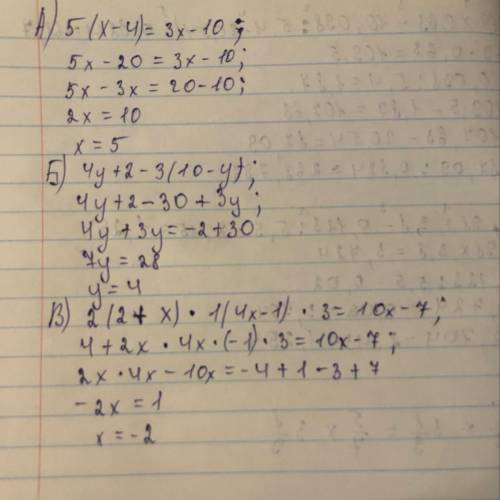 А) 5·(x-4)=3x-10;
5x-20=3x-10;
5x-3x=20-10;
2x=10
x=5
Б) 4y+2-3(10-y);
4y+2-30+3y;
4y+3y=-2+30
7y=28
y=4
В) 2(2+x)·1(4x-1)·3=10x-7;
4+2x·4x·(-1)·3=10x-7;
2x·4x-10x=-4+1-3+7
-2x=1
x=-2